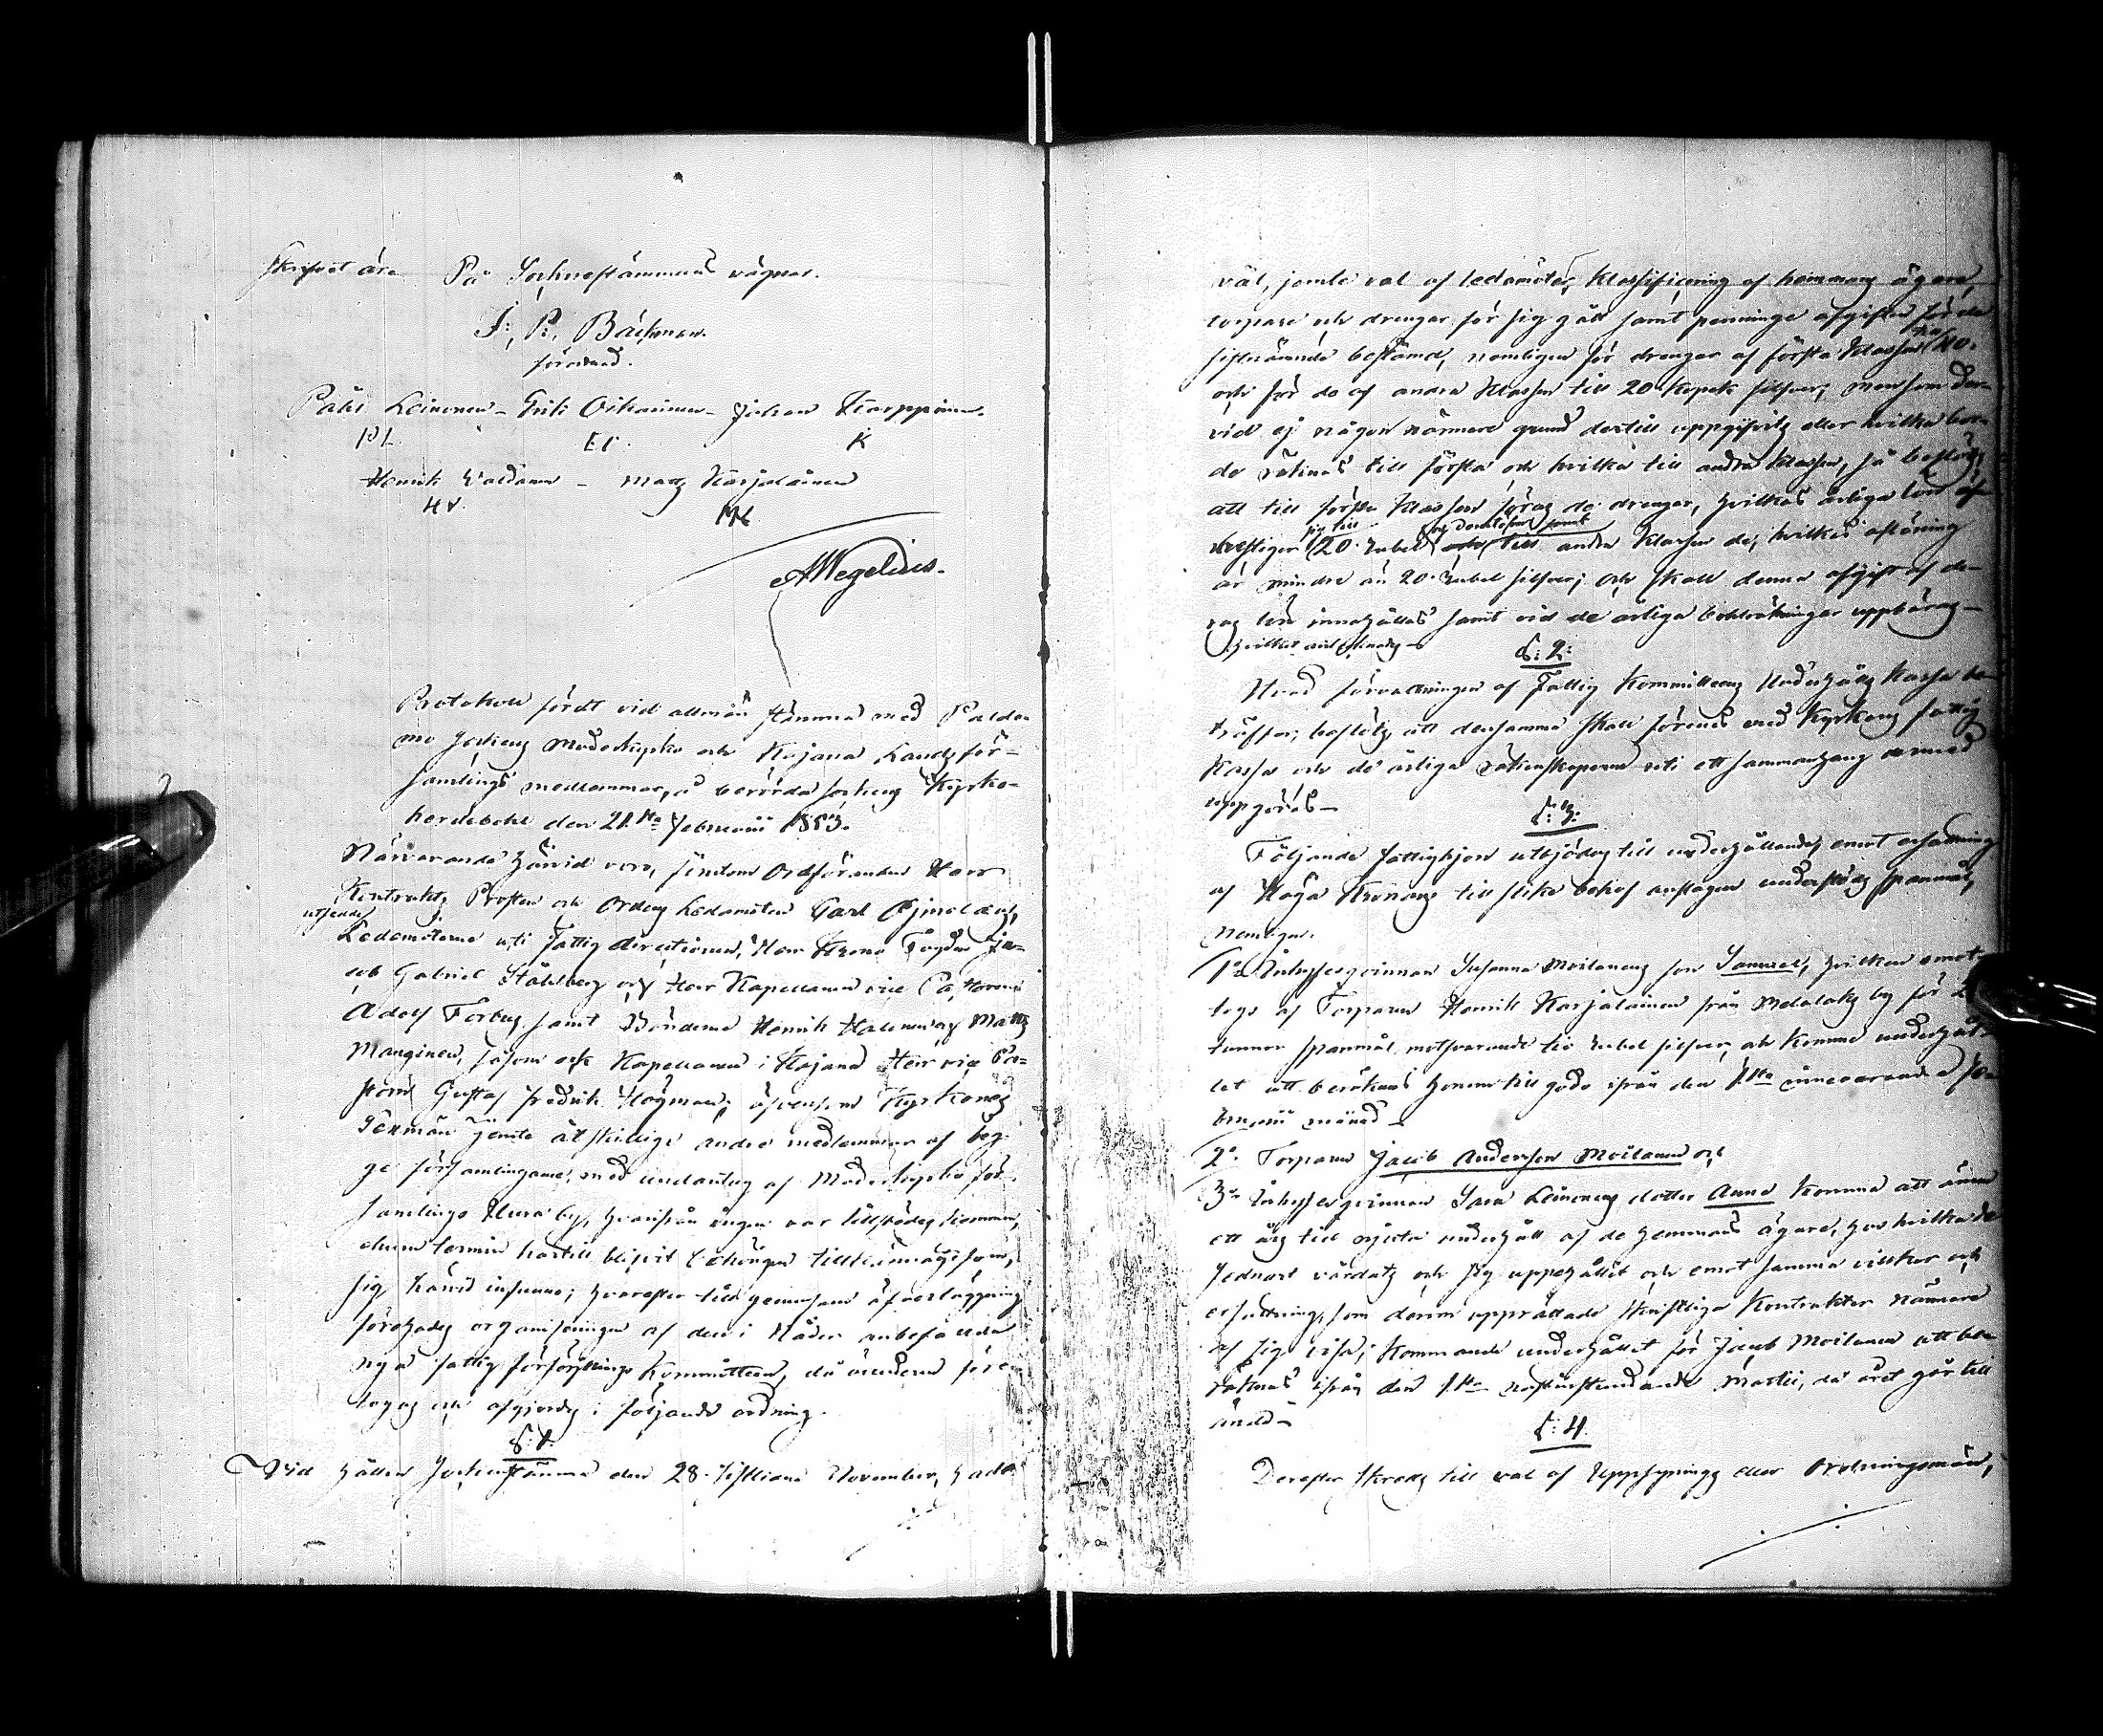 skrifvet åra På Sockne stämmans vägnar.
J: R. Bäckman.
förordnad.
Påhl Leinonen - Erik Oikarinen - Johan Karppinen.
PL. EO. K
Henrik Valdanen - Matts Karjalainen
HV. MK
AWegelius.
Protokoll fördt vid allmän stämma med Palda-
mo Sockens Moderkyrko och Kajana Landsför-
samlings medlemmar, å berörda Sockens Kyrko-
herdebohl den 21sta Februarii 1853.
Närvarande härvid voro, förutom Ordföranden Herr
Kontrakts Prosten och Ordens Ledamoten Carl
utsedda
Ledamöterne uti Fattig directionen, Herr Krono Fogden Ja-
cob Gabriel Ståhlberg och Herr Kapellanen vice Pastoren
Adolf Forbus samt Bönderne Henrik och Matts
Manginen, såsom ock Kapellanen i Kajana Herr vice Pa-
storn Gustaf Fredrik Högman; äfvensom Kyrkones
Sexmän jemte åtskillige andre medlemmar af beg-
ge församlingarne, med undantag af Moderkyrko för-
samlings by, hvarifrån ingen var tillstädes kommen,
ehuru termin härtill blifvit behörigen tillkännagifven,
sig härvid infunno; hvarefter till gemensam öfverläggning
förehades organiseringen af den i Nåder anbefallda
nya fattig försörjnings Kommitteen, då ärenderne före-
togos och afgjordes i följande ordning.
§: 1.
Vid hållen Sockenstämma den 28. sistlidne November, hade
väl, jemte val af ledamöter, klassificering af hemmans ägare,
torpare och drengar för sig gått samt penninge afgiften för de
sistnämnde bestämd, nemligen för drengar af första klassen till 40.
och för de af andra klassen till 20 kopek silfver; men som der-
vid ej någon närmare grund dertill uppgifvits eller hvilka bor-
de räknas till första och hvilka till andra klassen, så beslöts
att till första klassen föras de drengar, hvilkas årliga lön
sig till och deröfver samt
bestiger 20. rubel och till andra klassen de, hvilkas aflöning
är mindre än 20. rubel silfver; och skall denna afgift af de-
ras lön innehållas samt vid de årliga uppbäras -
§: 2:
Hvad förvaltningen af Fattig Kommitteens Underhålls Kassa be-
träffar; beslöts att densamma skall förenas med Kyrkans fattig
Kassa och de årliga räkenskaperne uti ett sammanhang dermed
uppgöras -
§: 3:
Följande fattighjon utbjödos till underhållande emot ersättning
af Höga Kronans till slike behof anslagne understöds spannmål,
nemligen.
1o Inhysesqvinnan Susanna Moilanens son Samuel, hvilken emot-
togs af Torparen Henrik Karjalainen från Melalaks by för 2
tunnor spannmål motsvarande tio rubel silfver, och kommer underhål-
let att beräknas honom till godo ifrån den 1sta innevarande Fe-
bruarii månad -
2o. Torparen Jacob Andersson Moilanen och
3o Inhysesqvinnan Sara Leinonens dotter Anna komma att ännu
ett års tid njuta underhåll af de hemmans ägare, hos hvilka de
sednast vårdats och sig uppehållit och emot samma villkor och
ersättning, som derom upprättade skriftliga Kontrakter närmare
af sig visa; kommande underhållet för Jacob Moilanen att be-
räknas ifrån den 1sta nästinstundande Martii, då året går till
ända -
§: 4.
Derefter skreds till val af Uppsynings eller Ordningsmän,